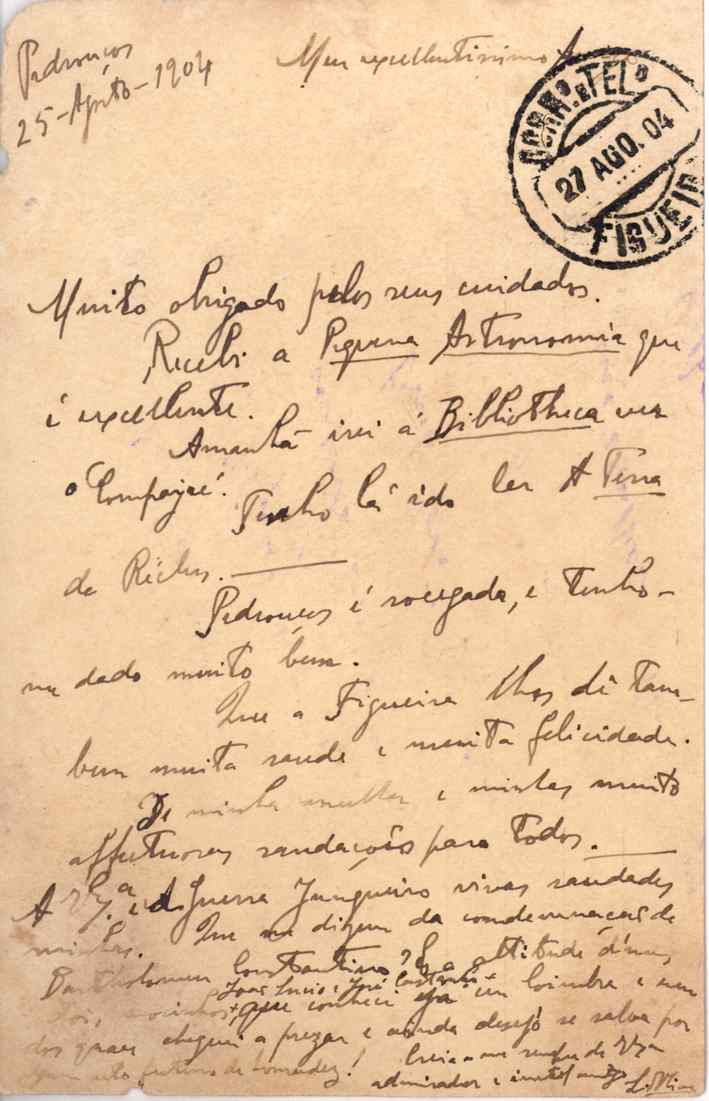 Pedrouços
25-Agosto-1904
Meu excellentissimo A
CORRº. E TELº
27 AGO. 04
FIGUEIR
Muito obrigado pelos seus cuidados.
Recebi a Pequena Astronomia que
é excellente.
Amanhã irei á Bibliotheca ver
o Compayré.
Tenho lá ido ler A Terra
de Réclus.
Pedrouços é socegada, e tenho-
me dado muito bem.
Que a Figueira lhes dê tam-
bem muita saude e muita felicidade.
De minha mulher e minhas muito
affectuosas saudações para todos.
A V. Exª e a Guerra Junqueiro vivas saudades
minhas. Que me dizem da condemnação de
Bartholomeu Constantino? E a attitude d'uns
José Lucio e José Castanho
dois, que conheci já em Coimbra e um
dos quaes cheguei a prezar e ainda desejo se salve por
algum acto futuro de honradez! Creia-me sempre de V. Exª
admirador e amigo